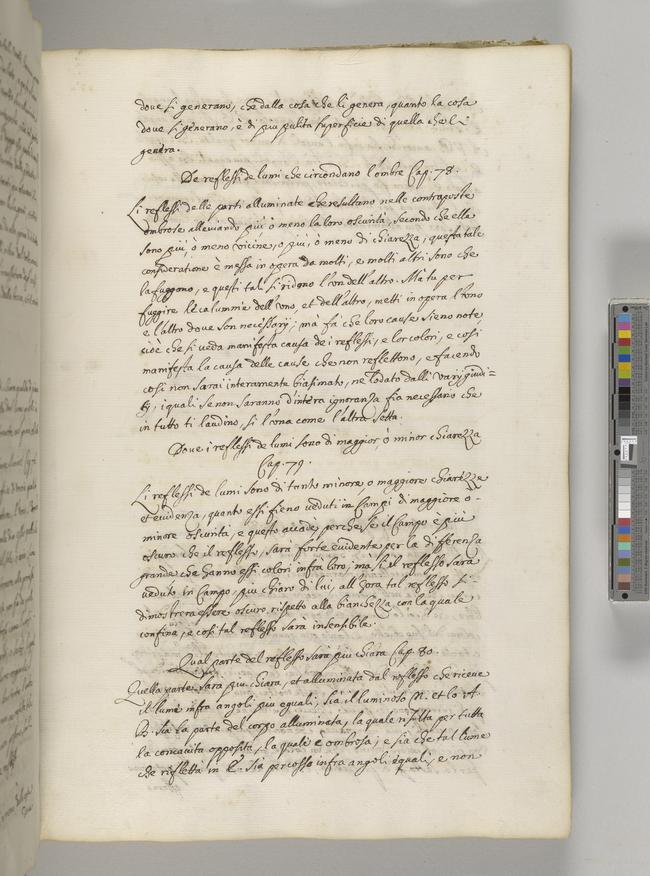 dove si generano, che dalla cosa che li genera, quanto la cosa
dove si generano, è di piu pulita superficie di quella che li
genera.
De reflessi de lumi che circondano l'ombre Cap. 78.
Li reflessi delle parti alluminate che resultano nelle contraposte
ombrose alleviando piu, ò meno la loro oscurità, secondo che ella
sono piu, ò meno vicine, o piu, ò meno di chiarezza; questa tale
consideratione è messa in opera da molti, e molti altri sono che
la fuggono, e questi tali si ridono l'un dell'altro. Ma tu per
fuggire le calunnie dell'uno, et dell'altro, metti in opera l'uno
e l'altro dove son necessarij; mà fà che loro cause sieno note,
cioè che si veda manifesta causa de i reflessi, e lor colori, e cosi
manifesta la causa delle cause che non reflettono, e facendo
cosi non sarai interamente biasimato, ne lodato dalli varij giudi=
tij; i quali se non saranno d'intera ignoranza fia necessario che
in tutto ti laudino, si l'una come l'altra setta.
Dove i reflessi de lumi sono di maggior, ò minor chiarezza
Cap. 79.
Li reflessi de lumi sono di tanto minore, o maggiore chiarezza
et evidenza, quanto essi fieno veduti in campi di maggiore o
minore oscurità, e questo accade perche, se il campo è piu
oscuro che il reflesso, sara forte evidente per la differenza
grande che hanno essi colori infra loro, mà, se il reflesso sara
veduto in campo, piu chiaro di lui, all'hora tal reflesso si
dimostrera essere oscuro, rispetto alla bianchezza, con la quale
confina, e cosi tal reflesso sarà insensibile.
Qual parte del reflesso sarà piu chiara Cap. 80.
Quella parte sara piu chiara, et alluminata dal reflesso che riceve
il lume infra angoli piu eguali; sia il luminoso N. et lo A.
B. sia la parte del corpo alluminata, la quale risalta per tutta
la concavita opposita, la quale è ombrosa; e sia che tal lume
che riflette in E. sia percosso infra angoli equali, e non